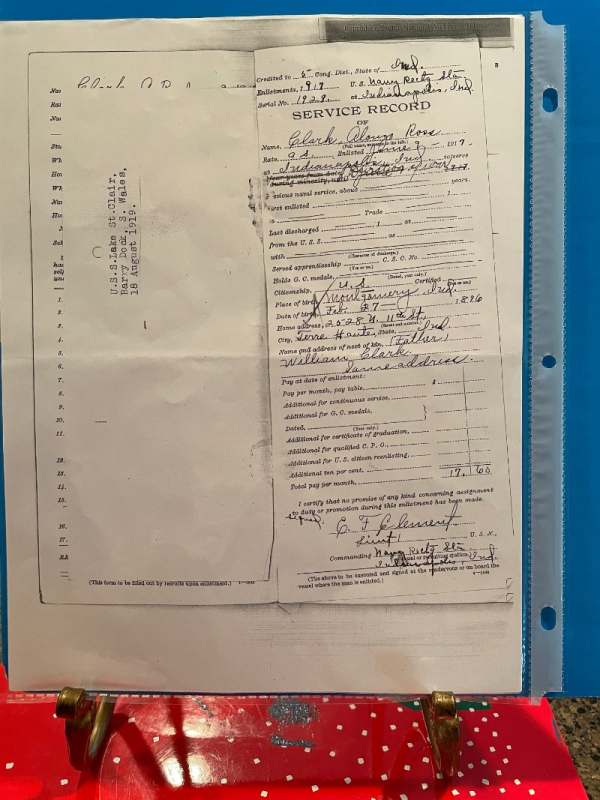 Credited to 5 Cong. Dist., State of Ind.
Enlistments, 1917 U.S. Navy Rectg Sta
Serial No. 1928, at Indianapolis, Ind
SERVICE RECORD
OF
Name, Clark, Alonzo Ross
Rate, a.s. Enlisted June 9 - 1917.
at Indianapolis, Ind to serve
Previous naval service, about years.
First enlisted
is Trade
Last discharged as
from the U. S. S. as
with (Character of discharge.)
Served apprenticeship C. S. C. No.
(Yes or no.)
Holds G. C. medals,
Citizenship, U.S. Certified
Place of birth, Montgomery, Ind.
Date of birth, Feb. 27 - 1896
Home address, 2528 N. 11th St,
(Street and number.)
City, Terre Haute, State, Ind
Name and address of next of kin, (Father)
William Clark
Same address.
Pay at date of enlistment:
Pay per month, pay table, $
Additional for continuous service,
Additional for G. C. medals,
Dated,
Additional for certificate of graduation,
Additional for qualified C. P. O.,
Additional for U. S. citizen reenlisting,
Additional ten per cent,
Total pay per month, 17. 60
I certify that no promise of any kind concerning assignment
to duty or promotion during this enlistment has been made.
Signed, C F Clement
Lieut, U. S. N.,
Commanding Navy Rectg Sta
Indianapolis, Ind.
(The above to be executed and signed at the rendezvous or on board the
vessel where the man is enlisted.)
U.S.S.Lake St.Clair.
Barry Dock, S. Wales,
18 August 1919.
1.
2.
3.
4.
5.
6.
7.
8.
9.
10.
11.
12.
13.
14.
15.
16.
17.
(This form to be filled out by recruits upon enlistment.)